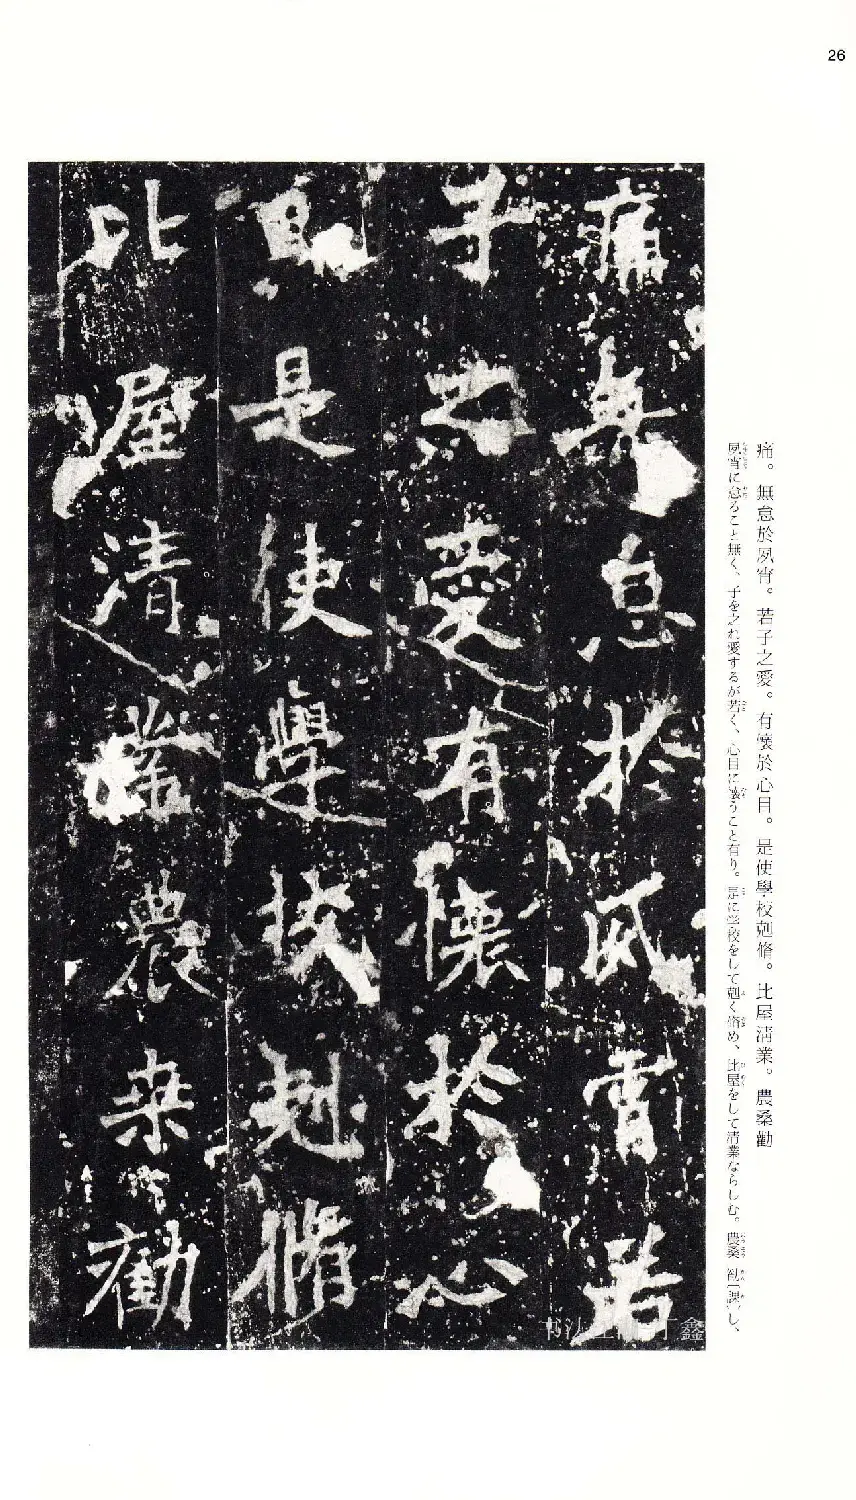 26
痛。無怠於夙宵。若子之愛。有懷於心目。是使學校剋脩。比屋清業。農桑勸
夙宵に怠ること無く、子を之れ愛するが若く、心目に懷うこと有り。是に学校をして剋く脩め、比屋をして清業ならしむ。農桑勧〔課〕し、
痛無怠於夙宵若
子之愛有懷於心
目是使學校剋脩
比屋清業農桒勸